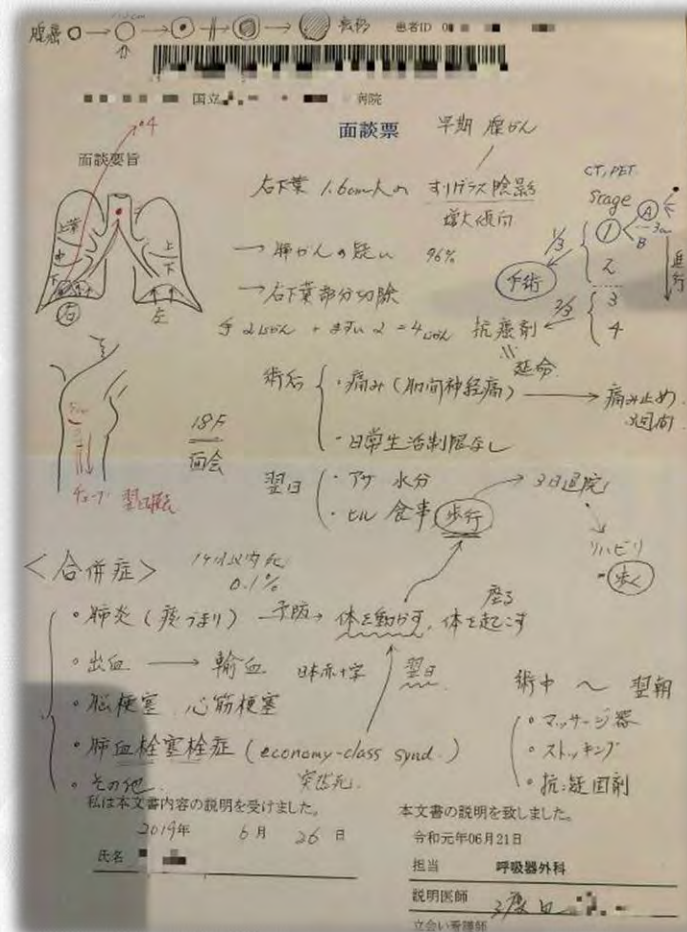 腺癌
転移
患者ID 0
国立
病院
面談票 早期 腺がん
面談要旨
*4
CT, PET.
右下葉 1.6cm大の すりガラス陰影
増大傾向
上葉 中 下
上 下
右 左
→ 肺がんの疑い 96%
→ 右下葉部分切除
手 2じかん + ますい 2 = 4じかん
Stage
1 A
B 3cm
2
3
4
1/3
手術
2/3
抗癌剤
延命
進行
術后
・痛み (肋間神経痛) → 痛み止め
・日常生活制限なし
18F
面会
チューブ
翌日
・アサ 水分
・ヒル 食事 歩行 → 3日退院
リハビリ
・歩く
<合併症>
0.1%
・肺炎 (痰づまり) 予防→ 体を動かす, 体を起こす
座る
・出血 → 輸血 日本赤十字 翌日
・脳梗塞 心筋梗塞
・肺血栓塞栓症 (economy-class synd.)
・その他. 突然死.
術中 ~ 翌朝
・マッサージ器
・ストッキング
・抗凝固剤
私は本文書内容の説明を受けました。
2019年 6月 26日
氏名
本文書の説明を致しました。
令和元年06月21日
担当 呼吸器外科
説明医師
立会い看護師